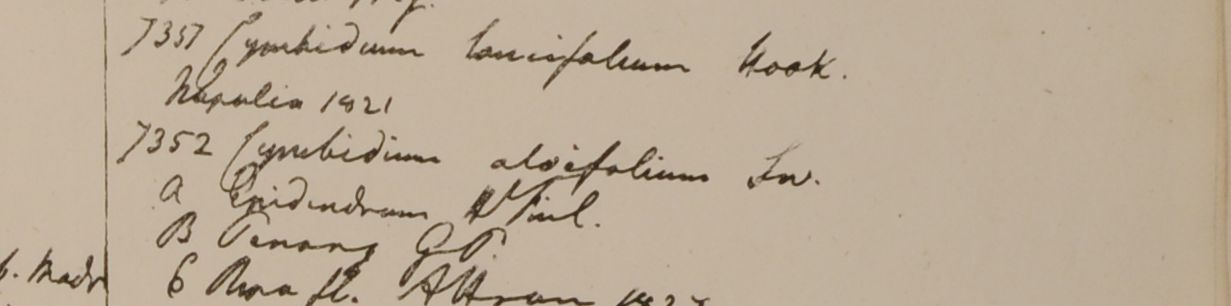 7351 Cymbidium lancifolium Hook.
Napalia 1821
7352 Cymbidium aloifolium Sw.
a Epidendrum HFinl.
B Penang GP.
6 Ripa fl. Attran 1827
Madr